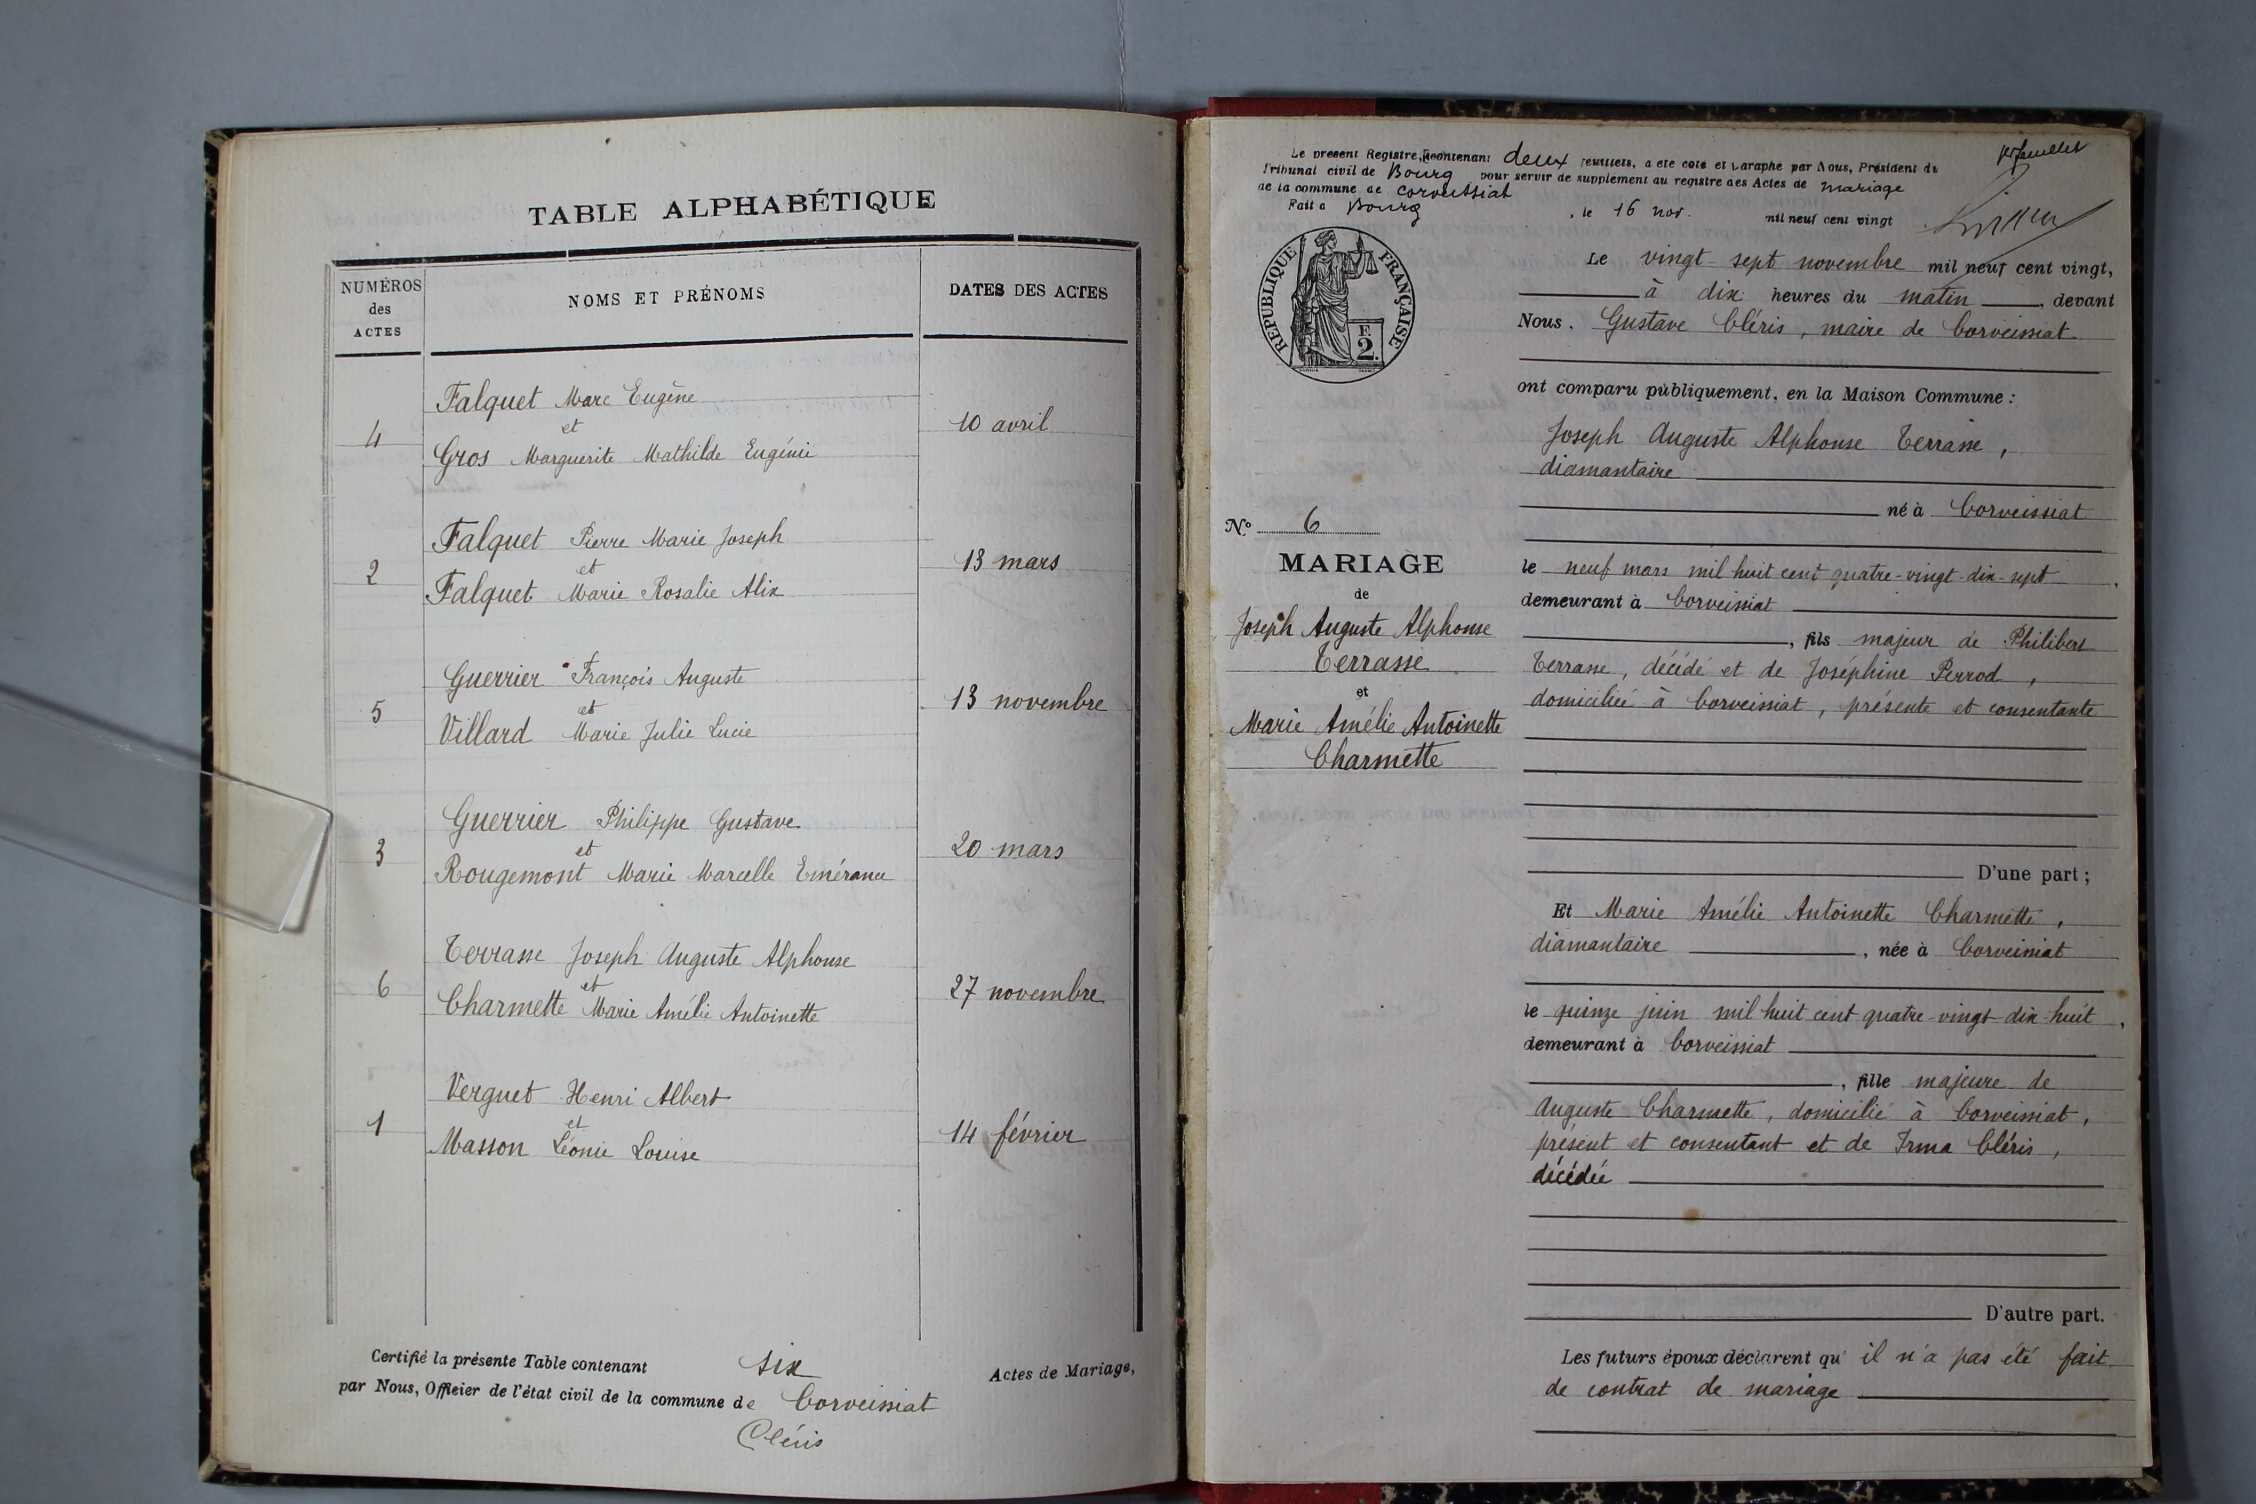 TABLE ALPHABÉTIQUE
NUMÉROS
des
ACTES
NOMS ET PRÉNOMS
DATES DES ACTES
Falquet Marc Eugène
et
4
10 avril
Gros Marguerite Mathilde Eugénie
Falquet Pierre Marie Joseph
et
2
13 mars
Falquet Marie Rosalie Alix
Guerrier François Auguste
et
5
13 novembre
Villard Marie Julie Lucie
Guerrier Philippe Gustave
et
3
20 mars
Rougemont Marie Marcelle Emérance
Terrasse Joseph Auguste Alphonse
et
6
27 novembre
Charmette Marie Amélie Antoinette
Verguet Henri Albert
et
1
14 février
Masson Léonie Louise
Certifié la présente Table contenant six Actes de Mariage,
par Nous, Officier de l'état civil de la commune de Corveissiat
Cléris
1er feuillet
Le présent Registre, contenant deux feuillets, a été coté et paraphé par Nous, Président du
Tribunal civil de Bourg pour servir de supplément au registre des Actes de mariage
de la commune de Corveissiat
Fait à Bourg, le 16 nov. mil neuf cent vingt
RÉPUBLIQUE FRANÇAISE
E
2.
Le vingt-sept novembre mil neuf cent vingt,
à dix heures du matin, devant
Nous. Gustave Cléris, maire de Corveissiat
ont comparu publiquement, en la Maison Commune :
Joseph Auguste Alphonse Terrasse,
diamantaire
né à Corveissiat
le neuf mars mil huit cent quatre-vingt-dix-sept,
demeurant à Corveissiat
, fils majeur de Philibert
Terrasse, décédé et de Joséphine Perrod,
domiciliée à Corveissiat, présente et consentante
D'une part ;
Et Marie Amélie Antoinette Charmette,
diamantaire, née à Corveissiat
le quinze juin mil huit cent quatre-vingt-dix-huit,
demeurant à Corveissiat
, fille majeure de
Auguste Charmette, domicilié à Corveissiat,
présent et consentant et de Irma Cléris,
décédée
D'autre part.
Les futurs époux déclarent qu'il n'a pas été fait
de contrat de mariage
No 6
MARIAGE
de
Joseph Auguste Alphonse
Terrasse
et
Marie Amélie Antoinette
Charmette